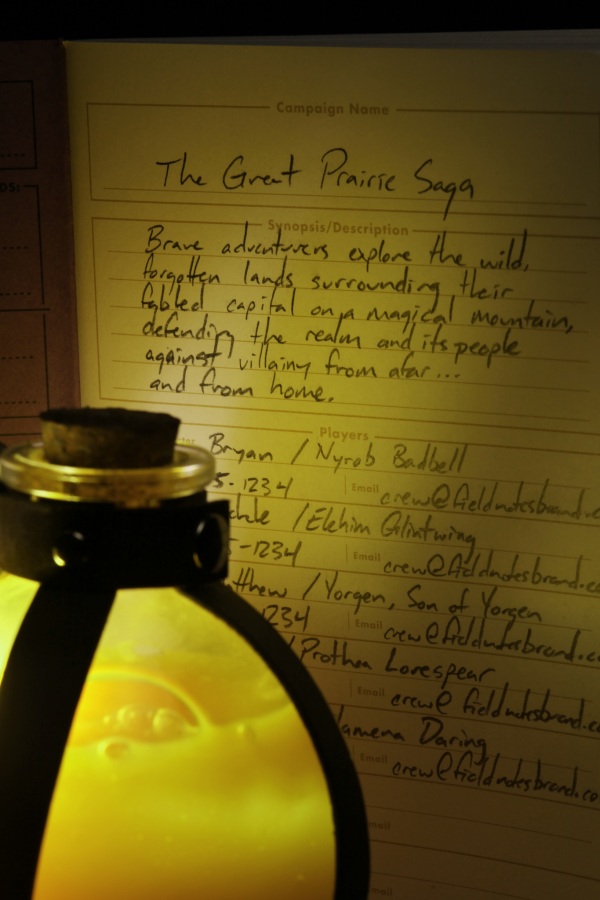 Campaign Name
The Great Prairie Saga
Synopsis/Description
Brave adventurers explore the wild,
forgotten lands surrounding their
fabled capital on a magical mountain,
defending the realm and its people
against villainy from afar...
and from home.
Players
Bryan / Nyrob Badbell
5-1234 Email crew@fieldnotesbrand.c
/Elehim Glintwing
-1234 Email crew@fieldnotesbrand.co
tthew / Yorgen, Son of Yorgen
1234 Email crew@fieldnotesbrand.co
/Prothea Lorespear
Email crew@fieldnotesbrand.co
lamena Daring
Email crew@fieldnotesbrand.co
Email
Email
DS: